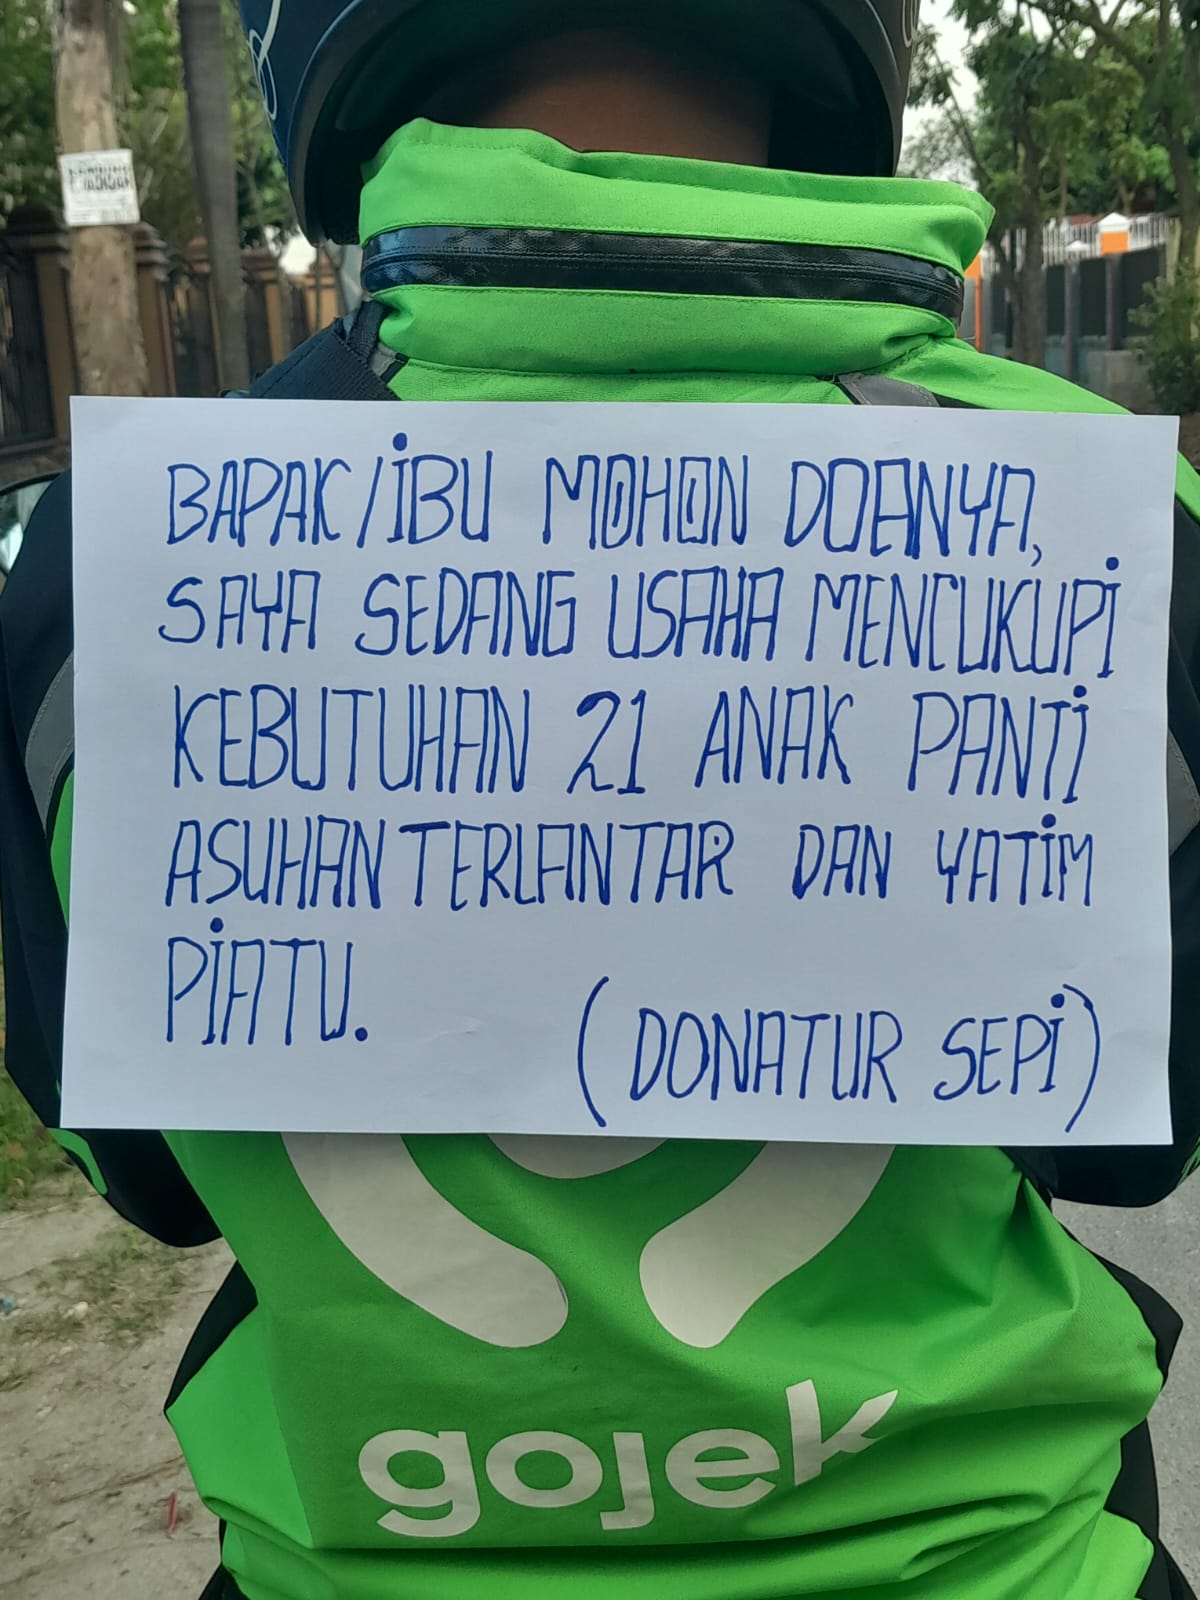 BAPAK/IBU MOHON DOANYA,
SAYA SEDANG USAHA MENCUKUPI
KEBUTUHAN 21 ANAK PANTI
ASUHAN TERLANTAR DAN YATIM
PIATU.
(DONATUR SEPI)
gojek